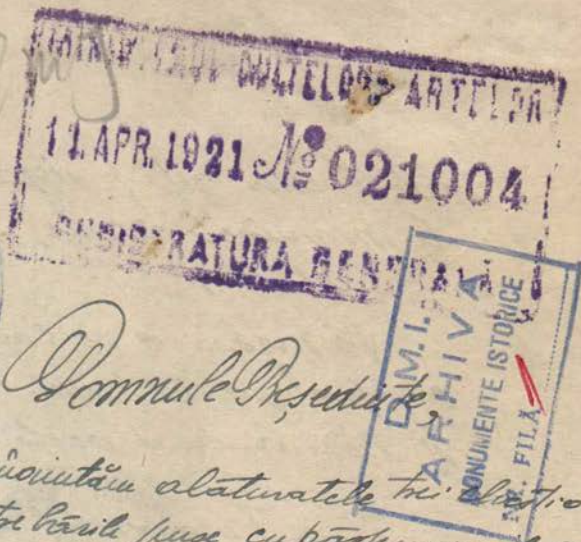 MINISTERUL CULTELOR ȘI ARTELOR
11. APR. 1921 № 021004
REGISTRATURA GENERALĂ
D.M.I.
ARHIVA
DONUMENTE ISTORICE
NR. FILĂ
Domnule Președinte,
alăturatele trei
puse cu